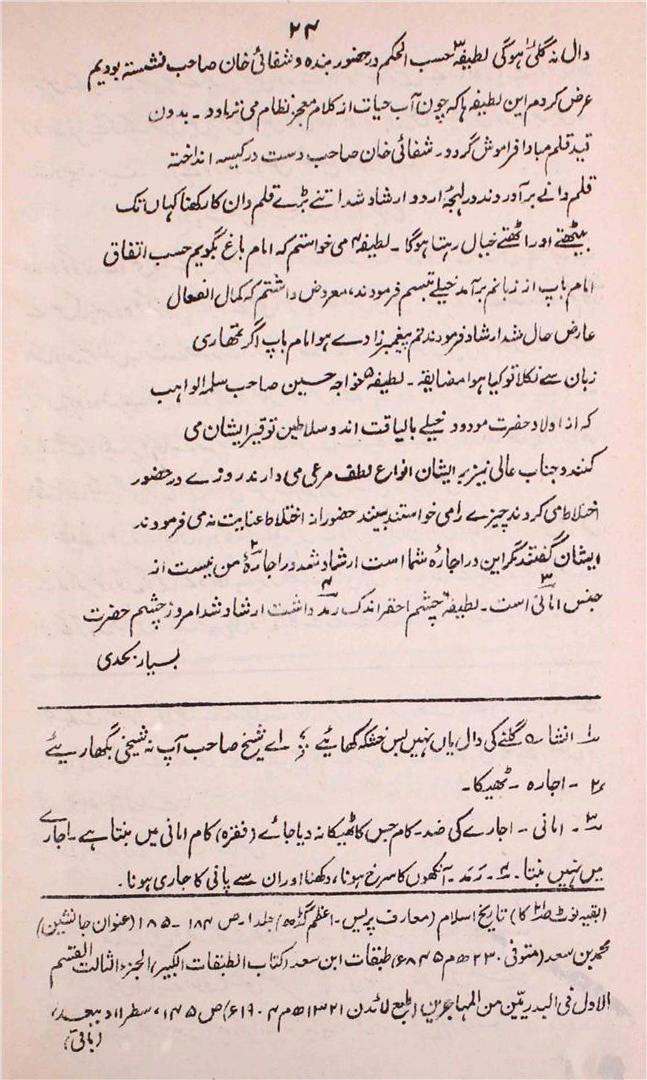 ۲۴
دال نہ گلی ہوگی لطیفہ۳ حسب الحکم در حضور بندہ و شفائی خان صاحب نشستہ بودیم
عرض کردم این لطیفہ ہا کہ چون آب حیات از کلام معجز نظام می تراود ۔ بدون
قید قلم مبادا فراموش گردد ۔ شفائی خان صاحب دست در کیسہ انداختہ
قلم دانے برآوردند در لہجۂ اردو ارشاد شد اتنے بڑے قلم دان کا رکھنا کہاں تک
بیٹھتے اور اٹھتے خیال رہتا ہوگا ۔ لطیفہ۴ می خواستم کہ امام باغ بگویم حسب اتفاق
امام باپ از زبانم برآمد خیلے تبسم فرمودند، معروض داشتم کہ کمال انفعال
عارض حال شد ارشاد فرمودند تم پیغمبر زادے ہو امام باپ اگر تمھاری
زبان سے نکلا تو کیا ہوا مضایقہ ۔ لطیفہ۵ خواجہ حسین صاحب سلمہ الواہب
کہ از اولاد حضرت مودود خیلے بالیاقت اند و سلاطین توقیر ایشان می
کنند و جناب عالی نیز بر ایشان انواع لطف مرعی می دارند روزے در حضور
اختلاط می کردند چیزے را می خواستند ببینند حضور از اختلاط عنایت نہ می فرمودند
ایشان گفتند مگر این در اجارہ شما است ارشاد شد در اجارۂ۲ من نیست از
جنس امانی۳ است ۔ لطیفہ۶ چشم احقر اندک رمد۴ داشت ارشاد شد امروز چشم حضرت
بسیار بحدی
۱ انشا ؎ گلنے کی دال یاں نہیں بس خشکہ کھائیے ؛ اے شیخ صاحب آپ نہ شیخی بگھاریئے
۲ ۔ اجارہ ۔ ٹھیکا ۔
۳ ۔ امانی ۔ اجارے کی ضد ۔ کام جس کا ٹھیکا نہ دیا جائے (فقرہ) کام امانی میں بنتا ہے ۔ اجارے
میں نہیں بنتا ۔ ۴ ۔ رَمَد ۔ آنکھوں کا سرخ ہونا ، دکھنا اور ان سے پانی کا جاری ہونا ۔
(بقیہ نوٹ کا) تاریخ اسلام (معارف پریس ۔ اعظم گڑھ) جلد ۱ ۔ ص ۱۸۴ ۔ ۱۸۵ (عنوان جانشین)
محمد بن سعد (متوفی ۲۳۰ھ م ۸۴۵ء) طبقات ابن سعد (کتاب الطبقات الکبیر) الجزء الثالث القسم
الاول فی البدریین من المہاجرین (طبع لائدن ۱۳۲۱ھ م ۱۹۰۴ء) ص ۱۴۵ ، سطر ۱۱ و ببعد ،
(باقی)